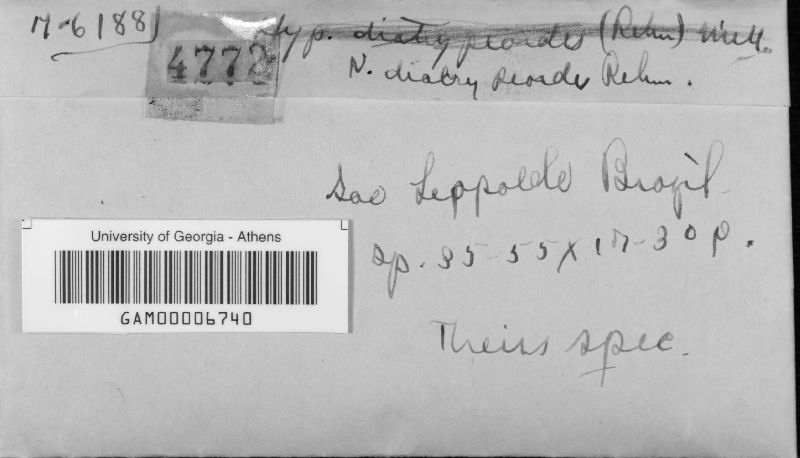 M-6188
4772
Hyp. diatrypeoides (Rehm) Mill.
N. diatrypeoides Rehm.
Sao Leopoldo Brazil
sp. 35-55 x 17-30 µ.
Theiss spec.
University of Georgia - Athens
GAM00006740